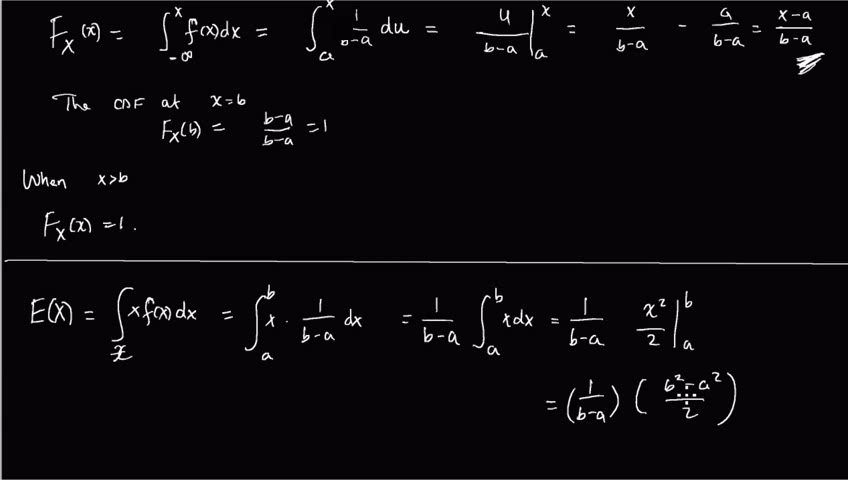 F_X(x) = ∫_{-∞}^{x} f(x)dx = ∫_{a}^{x} 1/(b-a) du = u/(b-a) |_{a}^{x} = x/(b-a) - a/(b-a) = (x-a)/(b-a)
The CDF at x=b
F_X(b) = (b-a)/(b-a) = 1
When x>b
F_X(x) = 1.
E(X) = ∫_{x} x f(x)dx = ∫_{a}^{b} x · 1/(b-a) dx = 1/(b-a) ∫_{a}^{b} x dx = 1/(b-a) x²/2 |_{a}^{b}
= (1/(b-a)) ((b²-a²)/2)